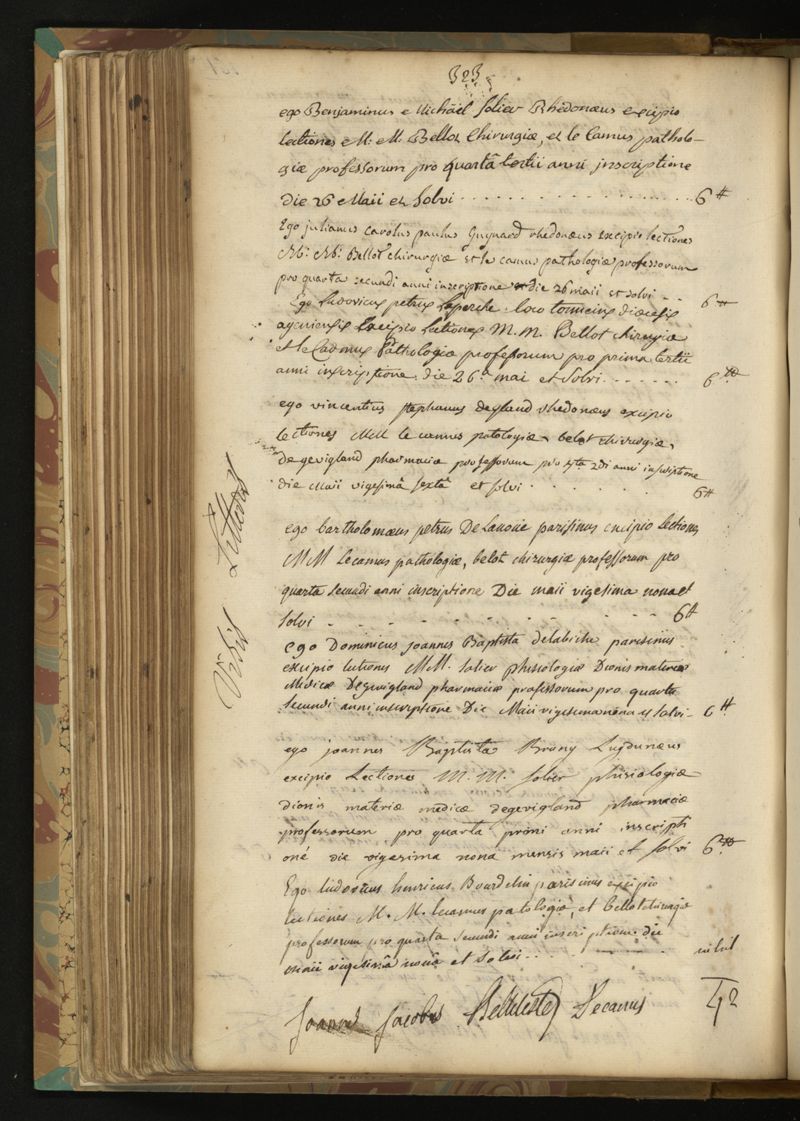 323
ego Benjaminus Michäel Solier Rhedonæus excipio
lectiones M. M. Bellot Chirurgiæ, et le Camus patholo-
giæ professorum pro quartâ tertii anni inscriptione
die 26 Maii et Solvi 6 ₶
Ego julianus carolus paulus Guynard rhedonæus excipio lectiones
M. M. Bellot chirurgiæ et le camus pathologiæ professorum
pro quarta secundi anni inscriptione die 26 maii et solvi 6 ₶
Ego Ludovicus petrus Leperche loco diæcesis
excipio lectiones M. M. Bellot chirurgiæ
et le Camus Pathologiæ professorum pro prima tertii
anni inscriptione die 26.a mai et solvi 6 ₶
ego vincentius stephanus degland rhedonæus excipio
lectiones MM le camus patologiæ, belot chirurgiæ,
degevigland pharmaciæ professorum pro 2di anni inscriptone
die Maii vigesimâ sextâ et solvi 6 ₶
ego bartholomæus petrus De Lanoüe parisinus excipio Lectiones
MM Lecamus pathologiæ, belot chirurgiæ professorum pro
quarta secundi anni inscriptione Die maii vigesima nona et
solvi 6 ₶
ego Dominicus joannes Baptista delabiche parisinus
excipio lectiones MM. solier phisiologiæ Dionis materiæ
Medicæ Degevigland pharmaciæ professorum pro quarta
secundi anni inscriptione Die Maii vigesima nona et solvi 6 ₶
ego joannes Baptista Bruny Lugdunæus
excipio Lectiones M. M. solier phisiologiæ
dionis materiæ medicæ degevigland pharmaciæ
professorum pro quarta primi anni inscripti
oné die vigesima nona mensis maii et solvi 6 ₶
Ego ludovicus henricus Bourdelin parisinus excipio
lectiones M. M. lecamus patologiæ, et bellot chirurgiæ
professorum pro quarta secundi anni inscriptione die
maii vigesimâ nonâ et solvi nihil
Joannes Jacobus Belleteste Decanus
42
Vidit